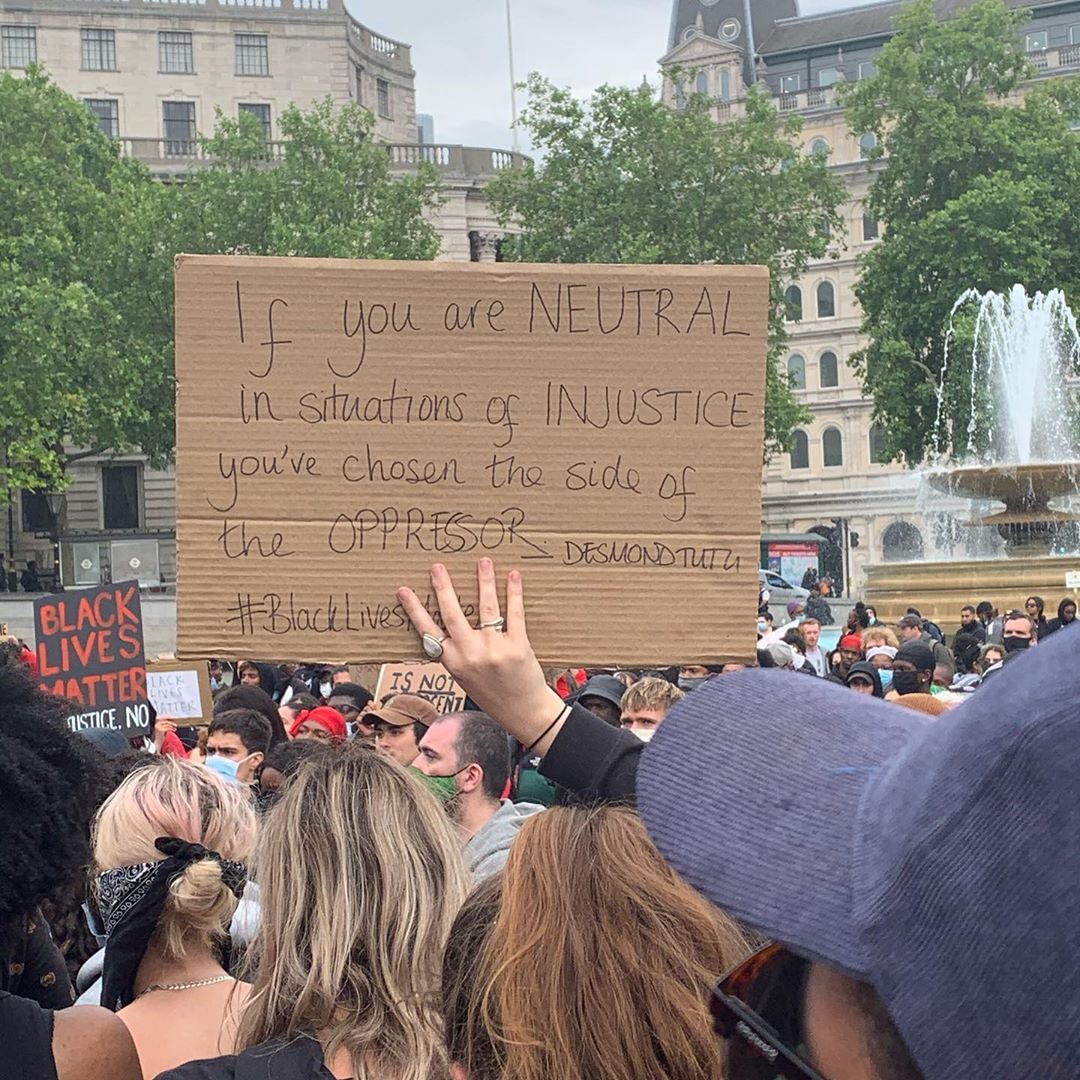 If you are NEUTRAL
in situations of INJUSTICE
you've chosen the side of
the OPPRESSOR
DESMOND TUTU
#BlackLives
BLACK
LIVES
MATTER
JUSTICE, NO
LACK
LIVES
ATTER
IS NOT